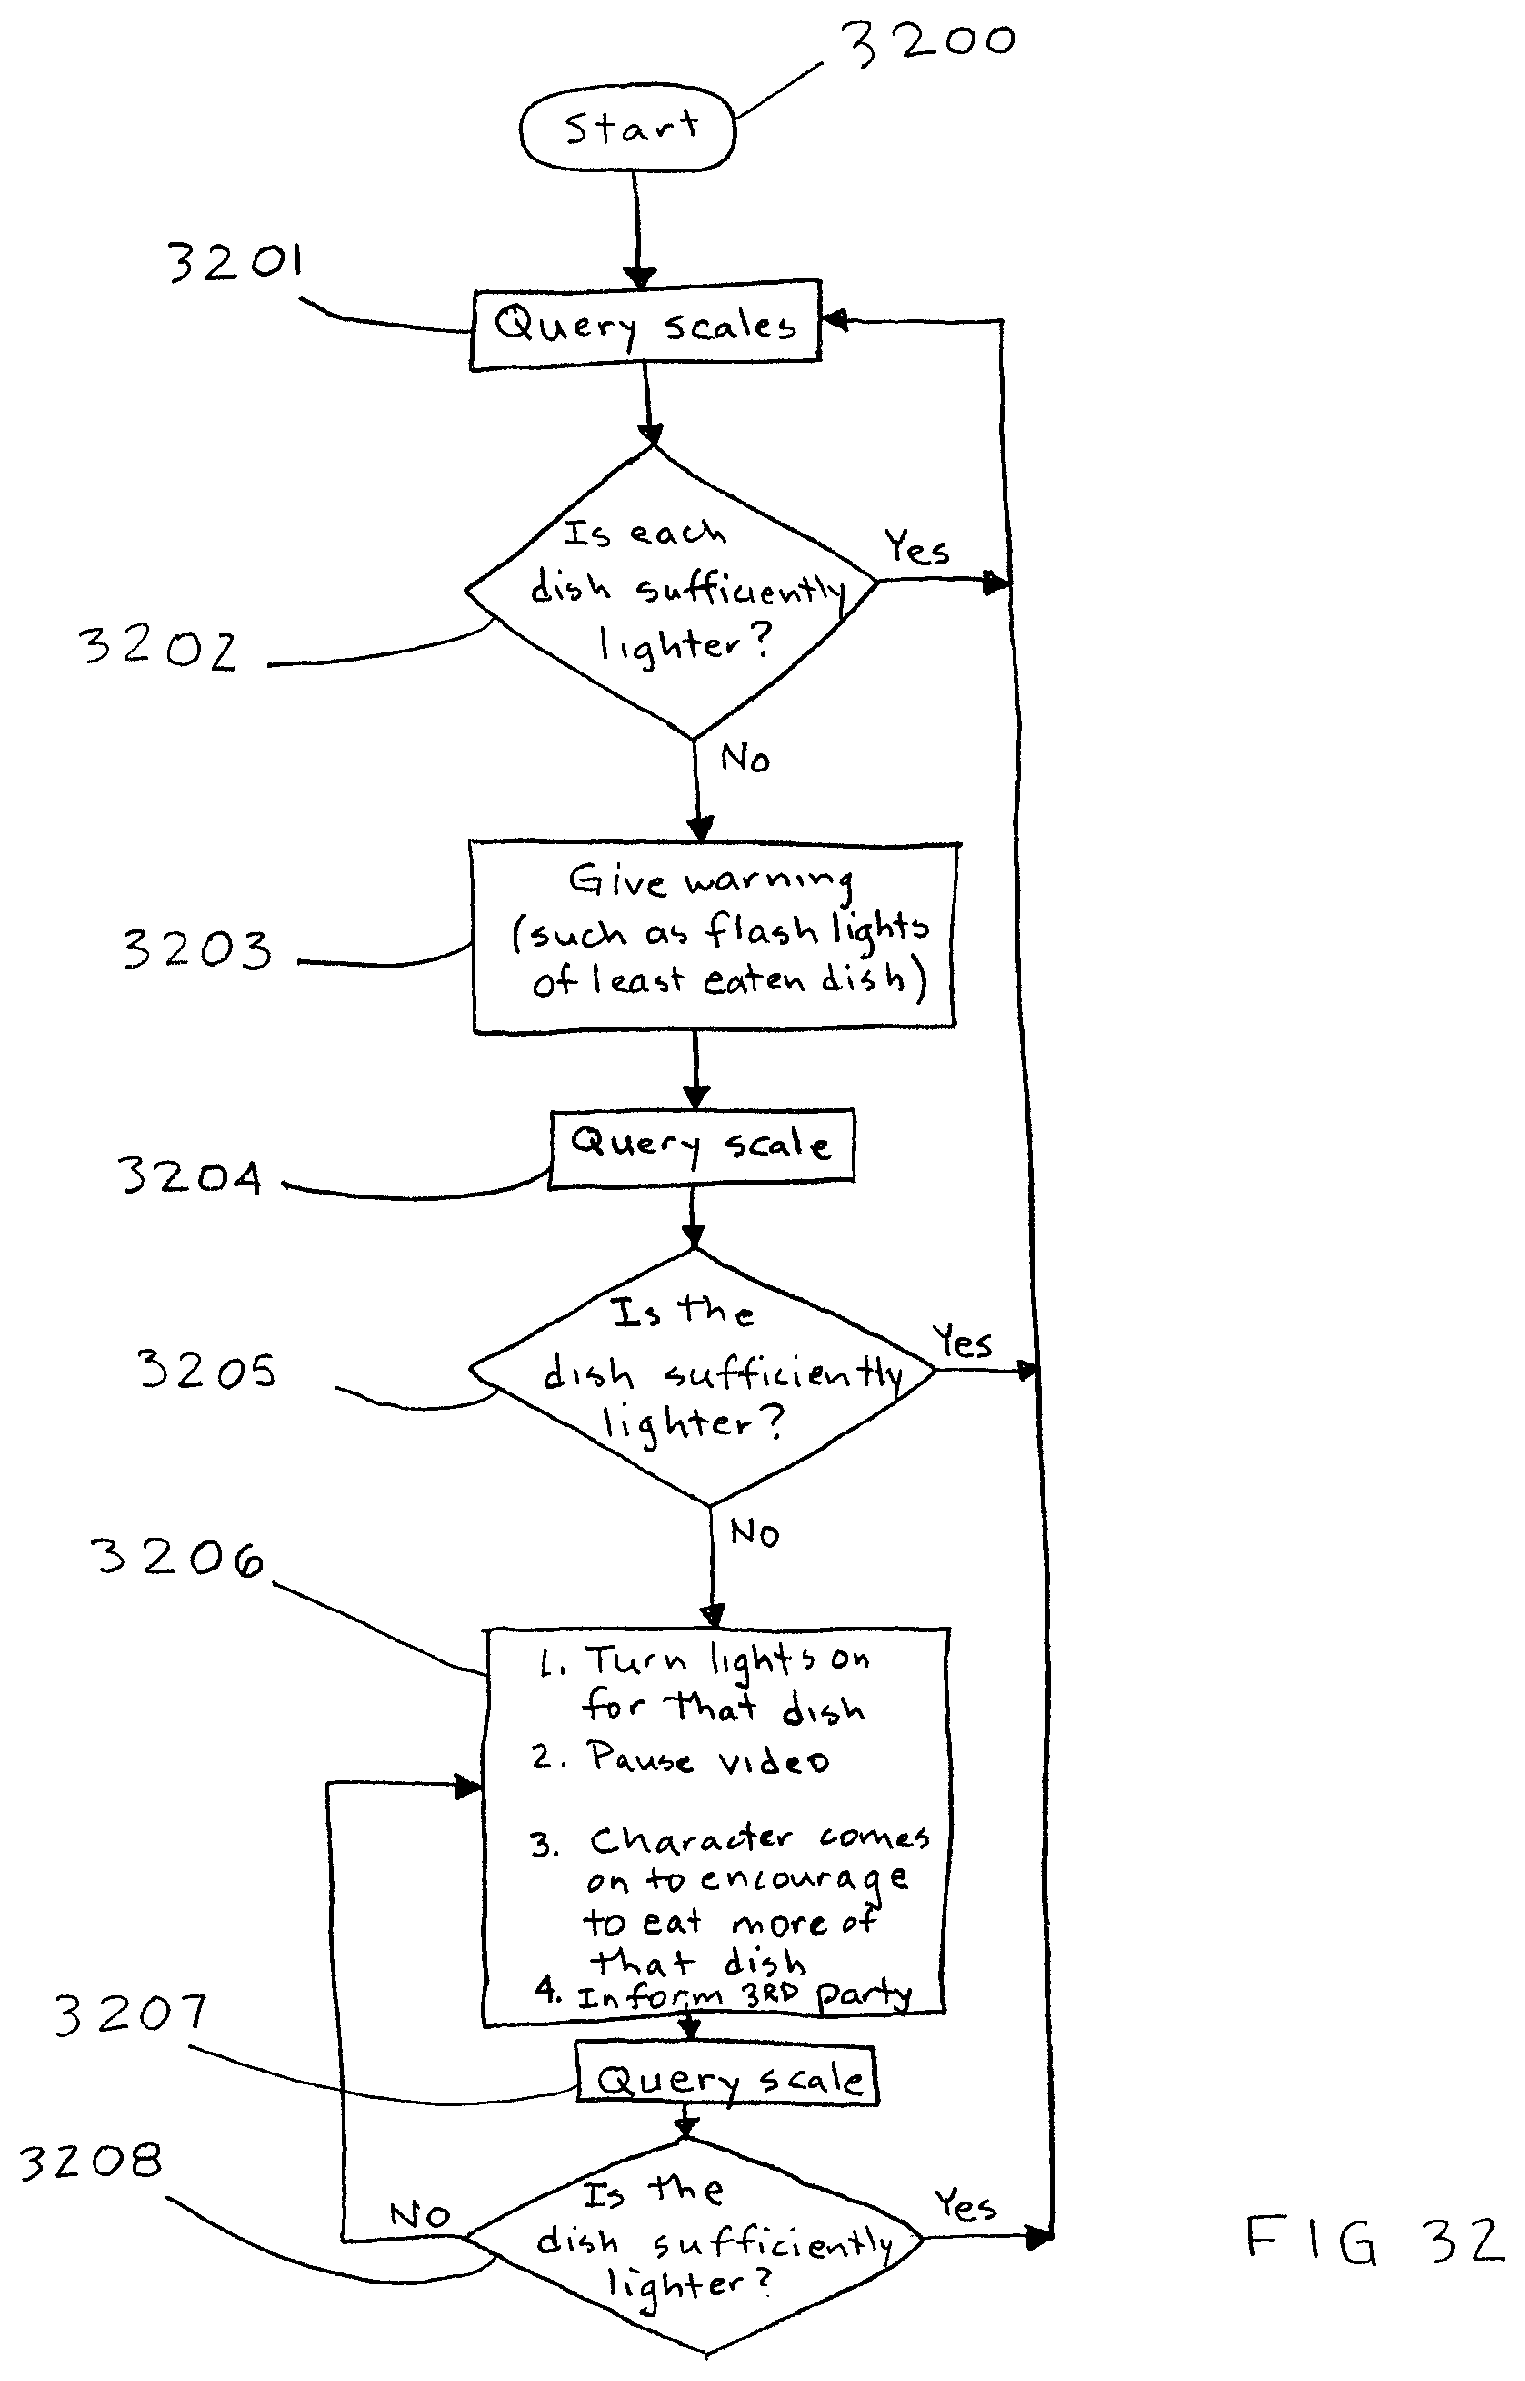 3200
Start
3201
Query scales
Is each
dish sufficiently
lighter?
Yes
3202
No
Give warning
(such as flash lights
of least eaten dish)
3203
Query scale
3204
Is the
dish sufficiently
lighter?
Yes
3205
No
3206
1. Turn lights on
for that dish
2. Pause video
3. Character comes
on to encourage
to eat more of
that dish
4. Inform 3RD party
3207
Query scale
3208
No
Is the
dish sufficiently
lighter?
Yes
FIG 32